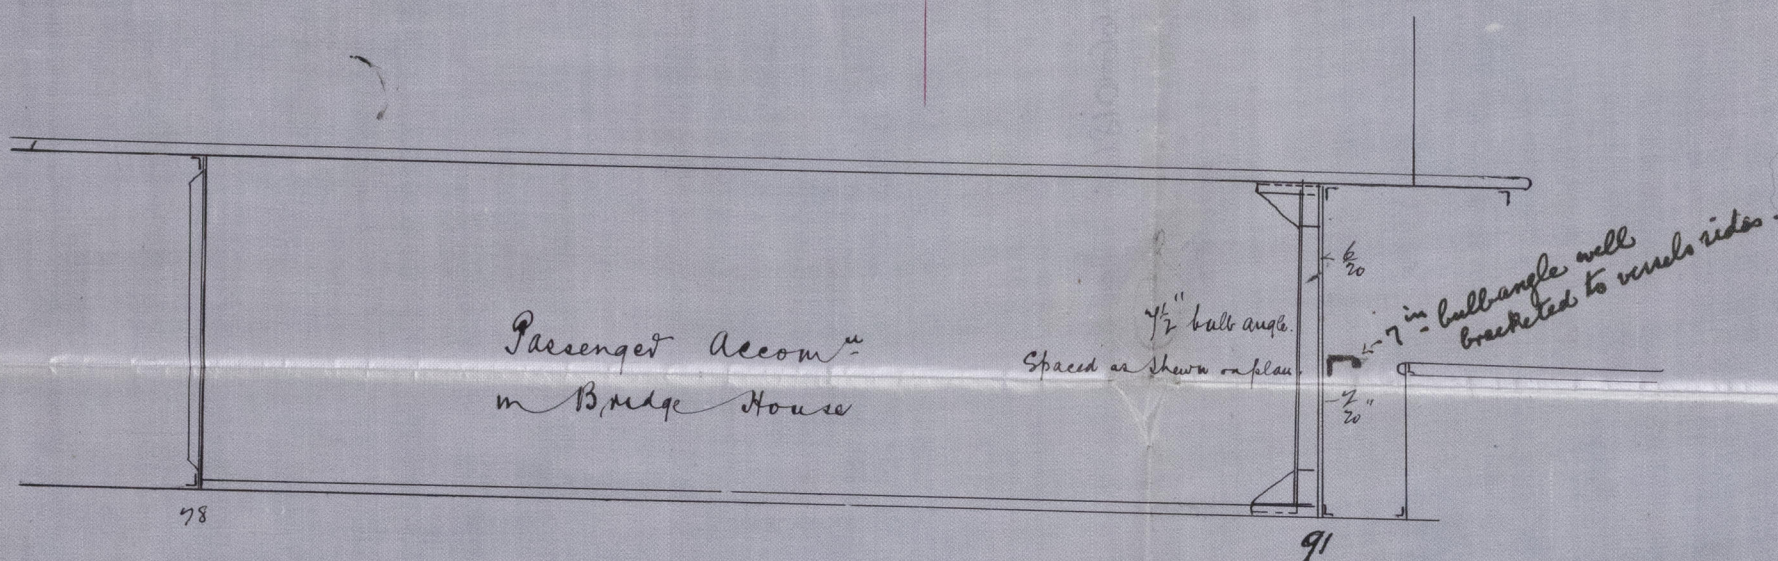 Passenger Accom<sup>n</sup>
in Bridge House
7½" bulb angle.
Spaced as shewn on plan.
6/20
7/20"
7<sup>in</sup> bulbangle well
bracketed to vessels sides.
78
91